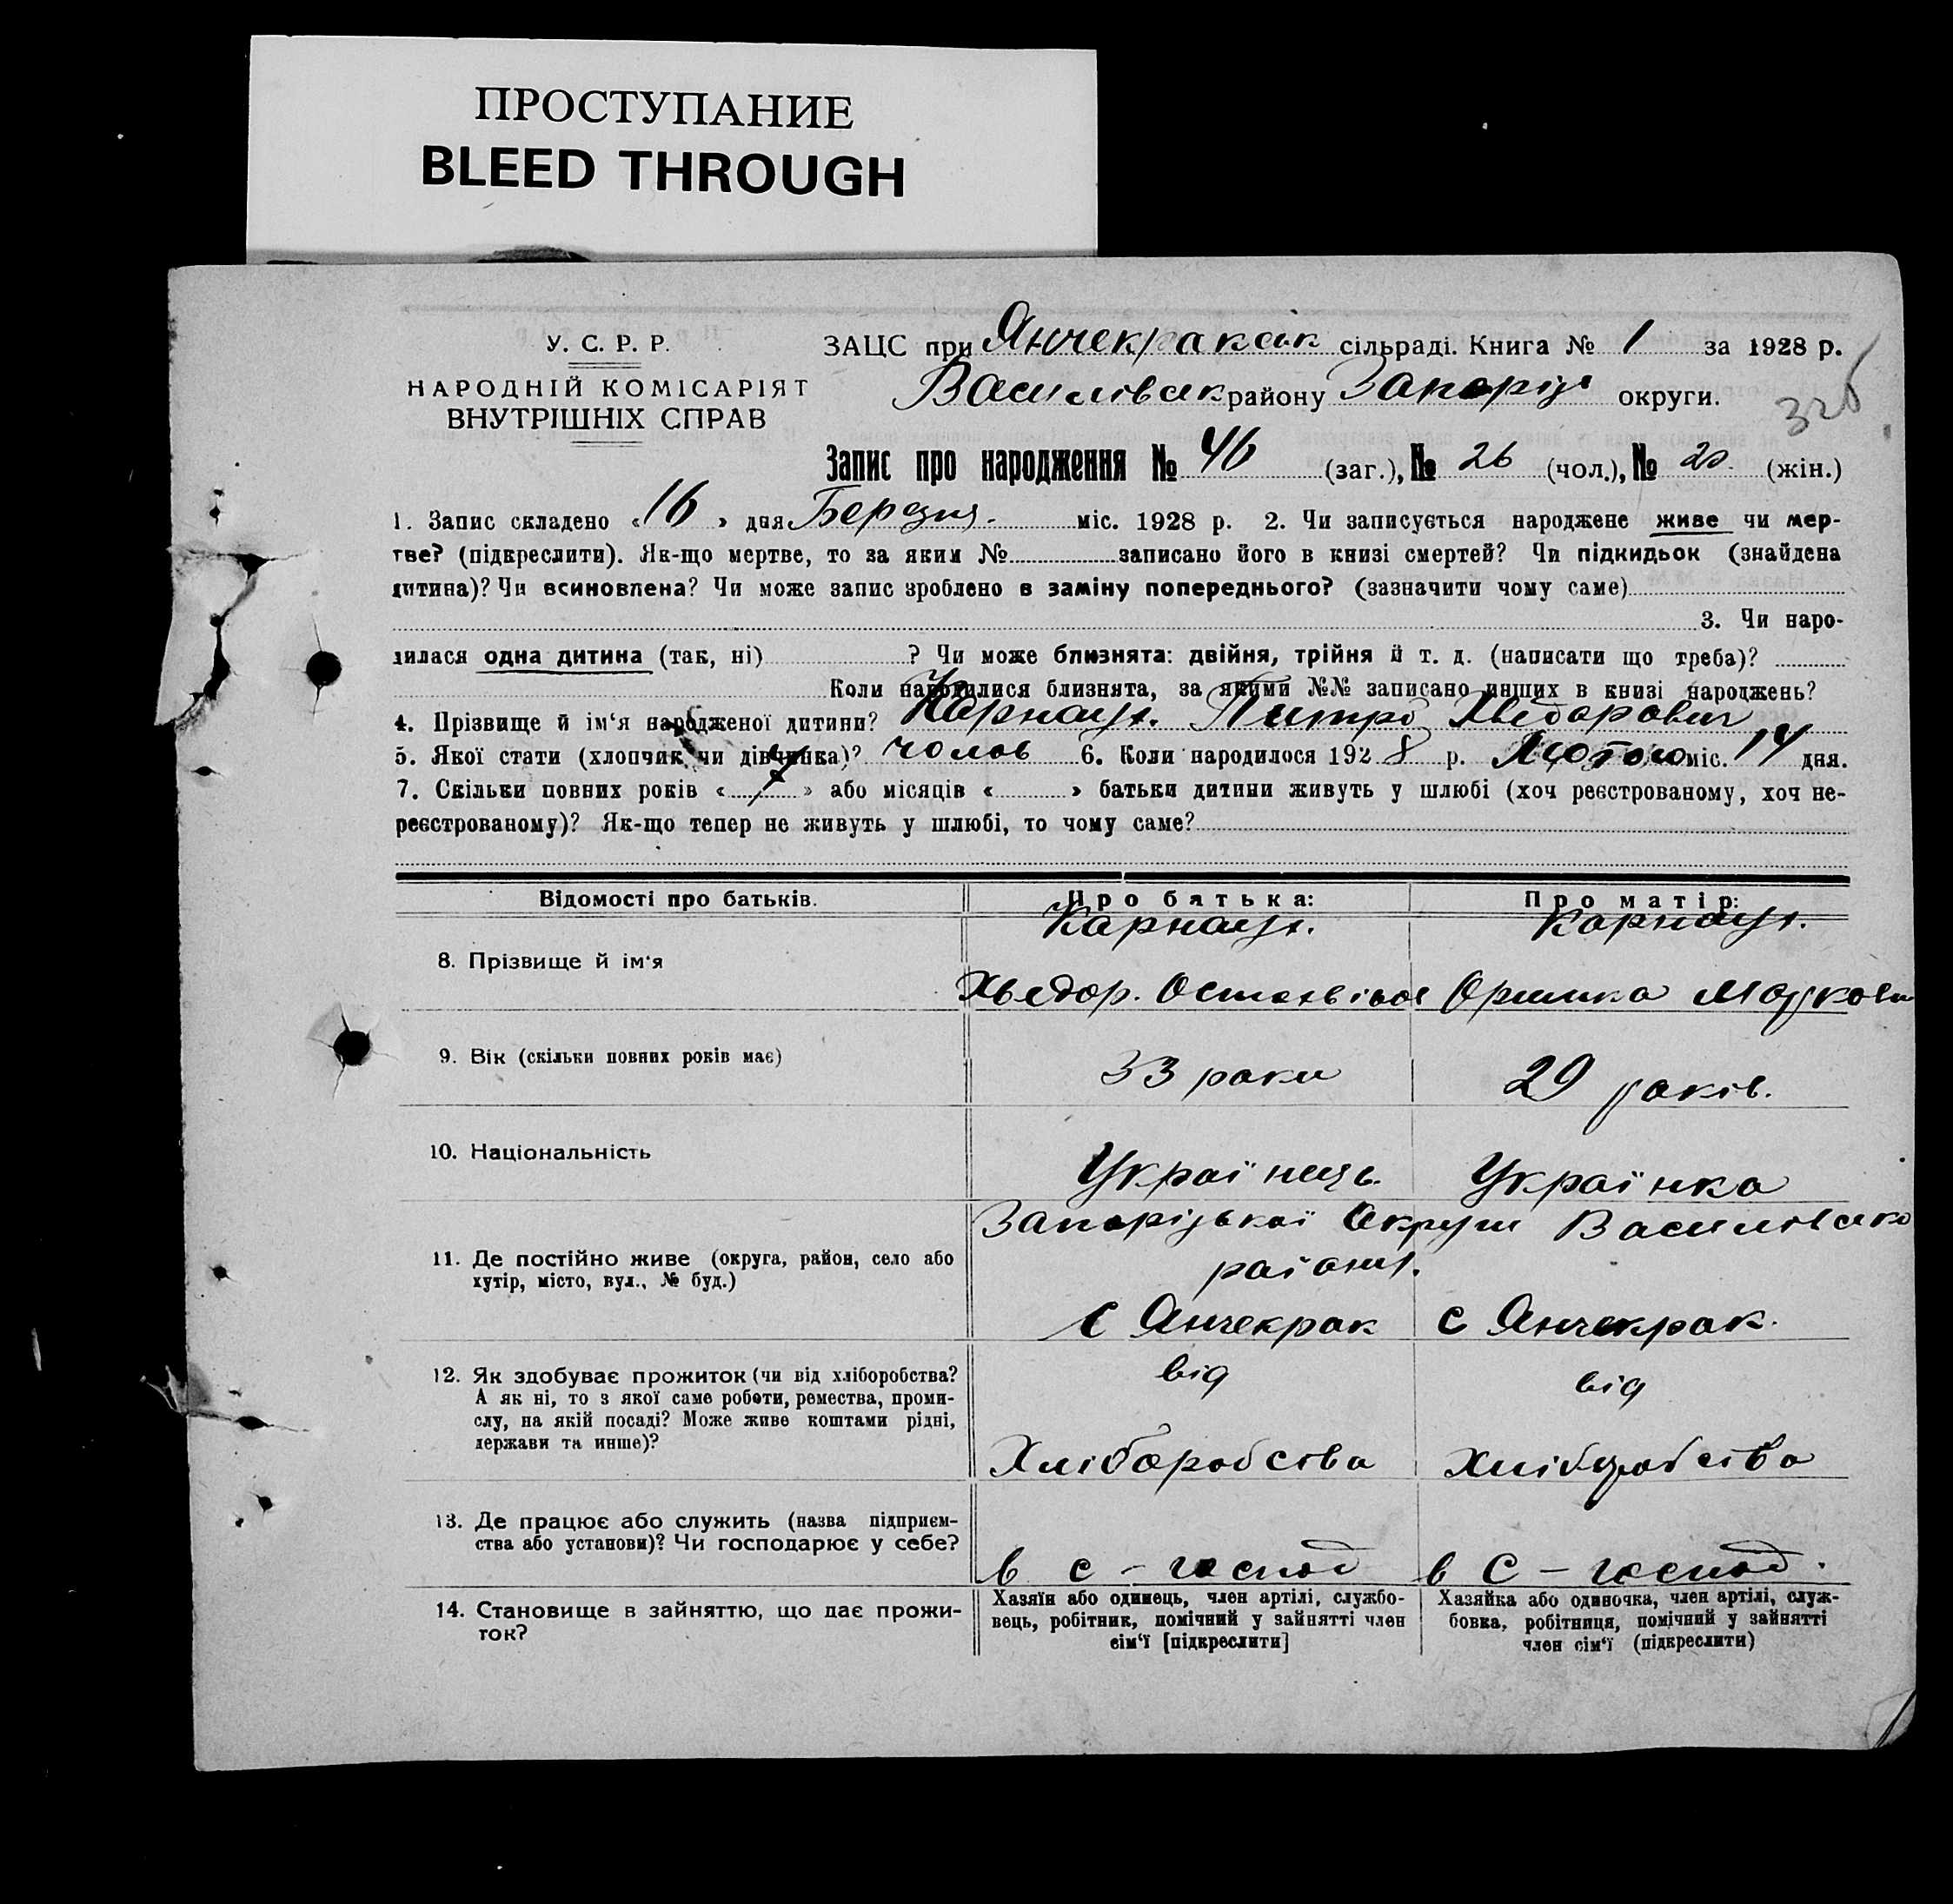 ПРОСТУПАНИЕ
BLEED THROUGH
У. С. Р. Р.
НАРОДНІЙ КОМІСАРІЯТ
ВНУТРІШНІХ СПРАВ
ЗАЦС при Янчекракськ сільраді. Книга № 1 за 1928 р.
Василівськ району Запоріз округи.
326
Запис про народження № 46 (заг.), № 26 (чол.), № 20 (жін.)
1. Запис складено «16» дня Березня. міс. 1928 р. 2. Чи записується народжене живе чи мер-
тве? (підкреслити). Як-що мертве, то за яким № записано його в книзі смертей? Чи підкидьок (знайдена
дитина)? Чи всиновлена? Чи може запис зроблено в заміну попереднього? (зазначити чому саме)
3. Чи наро-
дилася одна дитина (так, ні) ? Чи може близнята: двійня, трійня й т. д. (написати що треба)?
Коли народилися близнята, за якими №№ записано инших в книзі народжень?
4. Прізвище й ім‘я народженої дитини? Карнаух. Питро Хведорович
5. Якої стати (хлопчик чи дівчинка)? чолов 6. Коли народилося 1928 р. Лютого міс. 14 дня.
7. Скільки повних років « 7 » або місяців « » батьки дитини живуть у шлюбі (хоч реєстрованому, хоч не-
реєстрованому)? Як-що тепер не живуть у шлюбі, то чому саме?
Відомості про батьків. Про батька: Про матір:
Карнаух. Карнаух.
8. Прізвище й ім‘я
Хведор. Остапівич Оришка Маркови
9. Вік (скільки повних років має)
33 роки 29 років.
10. Національність
Українець. Українка
Запорізької Округи Василівсько
11. Де постійно живе (округа, район, село або
хутір, місто, вул., № буд.)
району.
с Янчекрак с Янчекрак.
12. Як здобуває прожиток (чи від хліборобства?
А як ні, то з якої саме роботи, ремества, проми-
слу, на якій посаді? Може живе коштами рідні,
держави та инше)?
від від
Хліборобства Хліборобства
13. Де працює або служить (назва підприєм-
ства або установи)? Чи господарює у себе?
в с - господ в С - господ.
14. Становище в зайняттю, що дає прожи-
ток?
Хазяїн або одинець, член артілі, службо-
вець, робітник, помічний у зайнятті член
сім‘ї [підкреслити]
Хазяйка або одиночка, член артілі, служ-
бовка, робітниця, помічний у зайнятті
член сім‘ї (підкреслити)